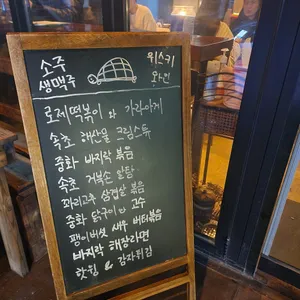 소주
생맥주
위스키
와인
로제떡볶이 와 가라아게
속초 해산물 크림스튜
중화 바지락 볶음
속초 거북손 알탕
꽈리고추 삼겹살 볶음
중화 닭구이 & 고수
팽이버섯 새우 버터볶음
바지락 해장라면
핫윙 & 감자튀김